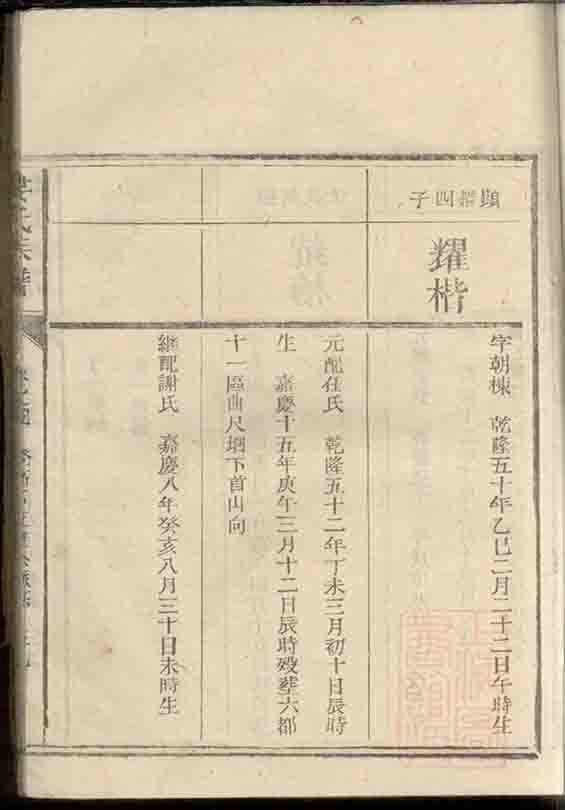 顯四子
耀楷
字朝棟 乾隆五十年乙巳二月二十二日午時生
元配任氏 乾隆五十二年丁未三月初十日辰時
生 嘉慶十五年庚午三月十二日辰時歿葬六都
十一區曲尺下首山向
繼配謝氏 嘉慶八年癸亥八月三十日未時生
氏宗譜